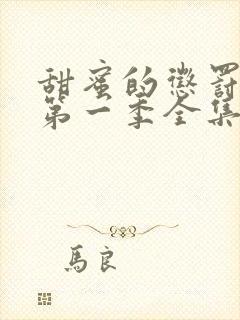 甜蜜的懲罰
第一季全集
馬良